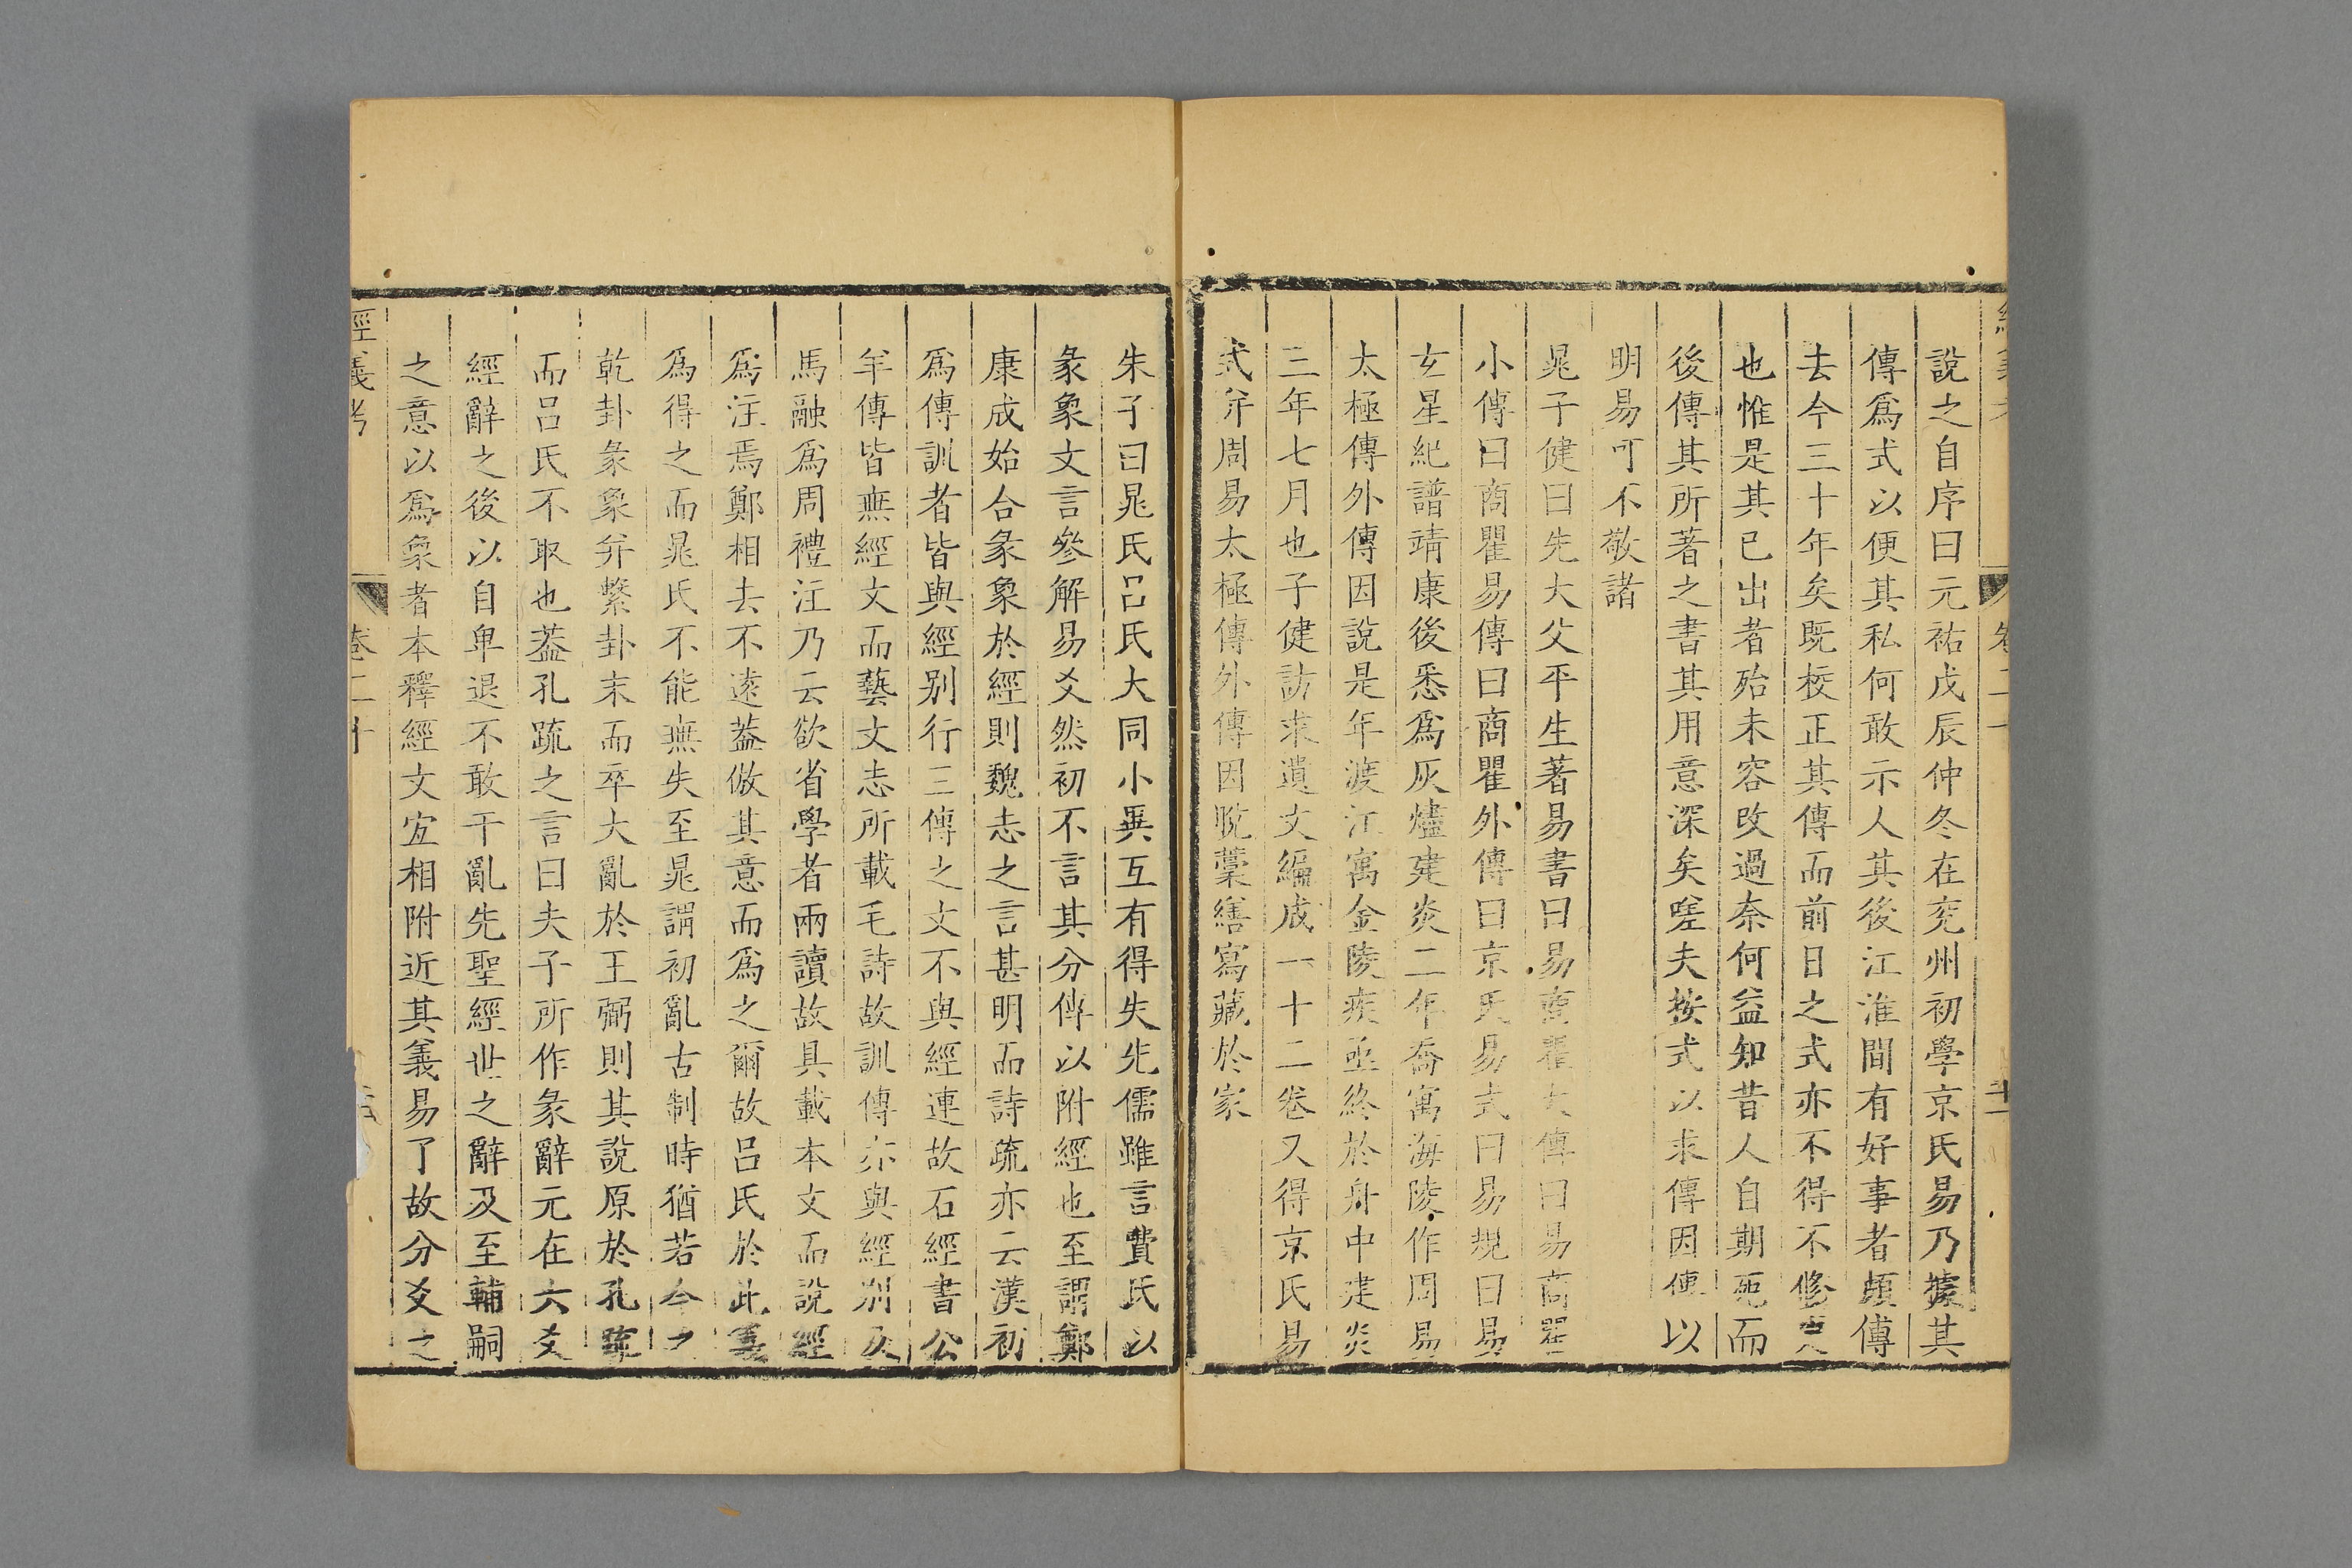 說之自序曰元祐戊辰仲冬在兖州初學京氏易乃據其
傳爲式以便其私何敢示人其後江淮間有好事者頗傳
去今三十年矣既校正其傳而前日之式亦不得不修
也惟是其已出者殆未容改過奈何益知昔人自期死而
後傳其所著之書其用意深矣嗟夫按式以求傳因傳以
明易可不敬諸
晁子健曰先大父平生著易書曰易商瞿大傳曰易商瞿
小傳曰商瞿易傳曰商瞿外傳曰京氏易式曰易規曰易
玄星紀譜靖康後悉爲灰燼建炎二年喬寓海陵作周易
太極傳外傳因說是年渡江寓金陵疾亟終於舟中建炎
三年七月也子健訪求遺文編成一十二卷又得京氏易
式并周易太極傳外傳因脫藁繕寫藏於家
朱子曰晁氏吕氏大同小異互有得失先儒雖言費氏以
彖象文言參解易爻然初不言其分傳以附經也至謂鄭
康成始合彖象於經則魏志之言甚明而詩疏亦云漢初
爲傳訓者皆與經别行三傳之文不與經連故石經書公
羊傳皆無經文而藝文志所載毛詩故訓傳亦與經别及
馬融爲周禮注乃云欲省學者兩讀故具載本文而說經
爲注焉鄭相去不遠葢倣其意而爲之爾故吕氏於此義
爲得之而晁氏不能無失至晁謂初亂古制時猶若今之
乾卦彖象并繫卦末而卒大亂於王弼則其說原於孔疏
而吕氏不取也葢孔疏之言曰夫子所作彖辭元在六爻
經辭之後以自卑退不敢干亂先聖經世之辭及至輔嗣
之意以爲象者本釋經文宜相附近其義易了故分爻之
經義考
卷二十